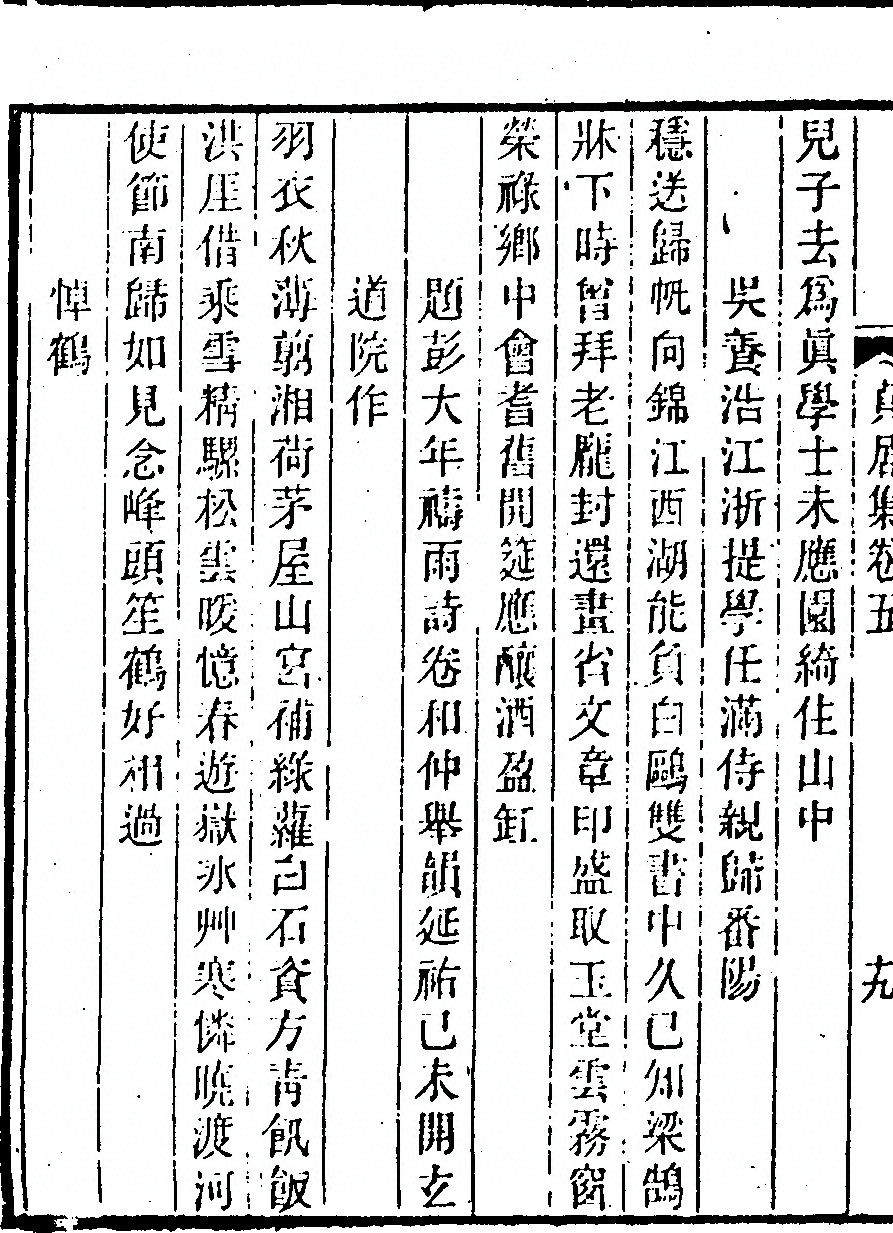 貞居集卷五
十九
兒子去爲眞學士未應園綺住山中
吳養浩江浙提學任滿侍親歸番陽
穩送歸帆向錦江西湖能負白鷗雙書中久已知梁鵠
牀下時曾拜老龐封還畫省文章印盛取玉堂雲霧窗
榮祿鄉中會耆舊開筵應釀酒盈缸
題彭大年禱雨詩卷和仲舉韻延祐己未開玄
道院作
羽衣秋薄翦湘荷茅屋山宮補綠蘿白石資方靑飢飯
洪厓借乘雪精騾松雲暖憶春遊嶽冰艸寒憐曉渡河
使節南歸如見念峰頭笙鶴好相過
悼鶴